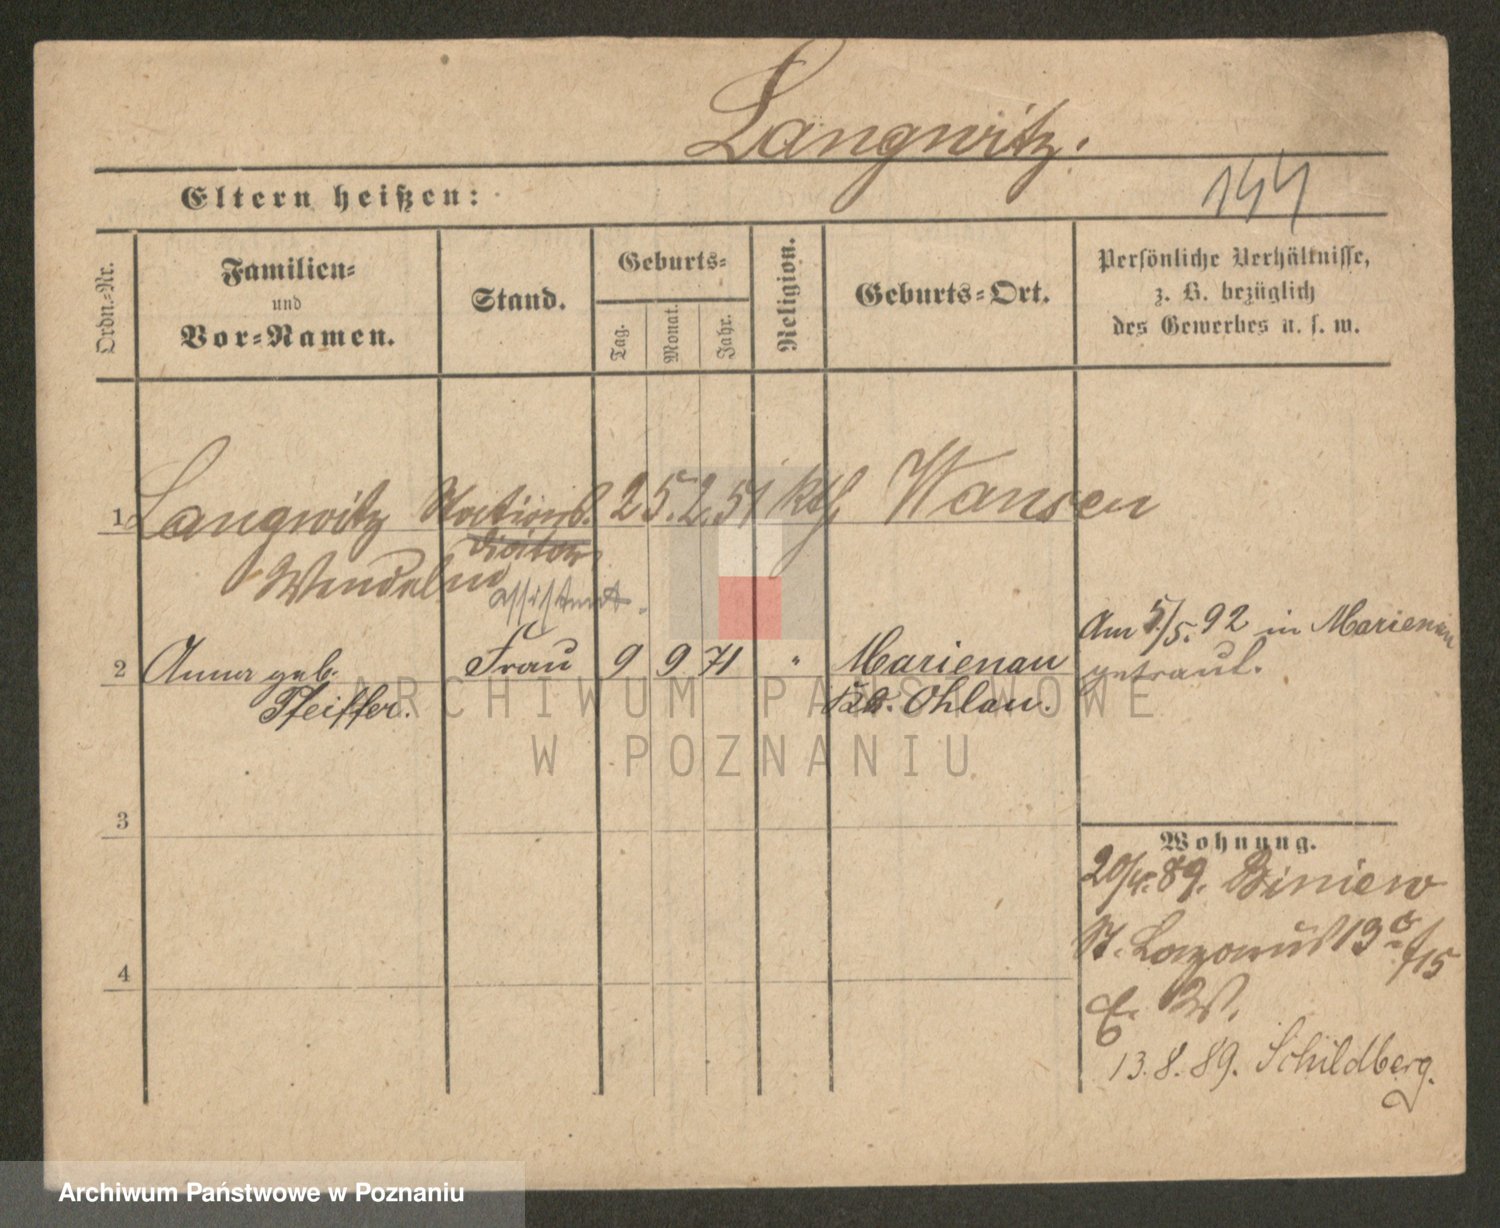 Langwitz.
144
Eltern heißen:
Ordn.-Nr.
Familien-
und
Vor-Namen.
Stand.
Geburts-
Tag.
Monat.
Jahr.
Religion.
Geburts-Ort.
Persönliche Verhältnisse,
z. B. bezüglich
des Gewerbes u. s. w.
1 Langwitz Stations. 25. 2. 51 kth. Wansen
Wendelin
diätar
assistent.
2 Anna geb. Frau 9 9 71 " Marienau
Pfeiffer.
Kr. Ohlau.
Am 5./5. 92 in Marienau
getraut.
3
4
Wohnung.
20/4. 89. Biniew
St. Lazarus 13
E. W.
13. 8. 89. Schildberg.
ARCHIWUM PAŃSTWOWE
W POZNANIU
Archiwum Państwowe w Poznaniu